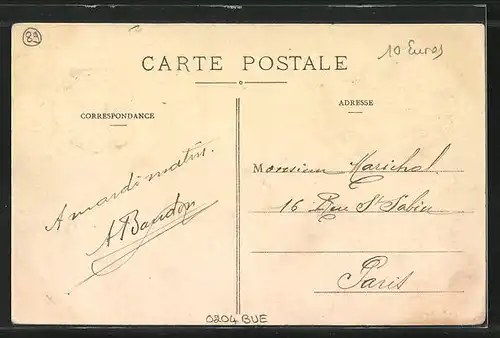 89
10 Euros
CARTE POSTALE
CORRESPONDANCE
ADRESSE
A mardi matin.
ABaudon
Monsieur Marichal.
16 Rue St Sabin
Paris
0204 BUE